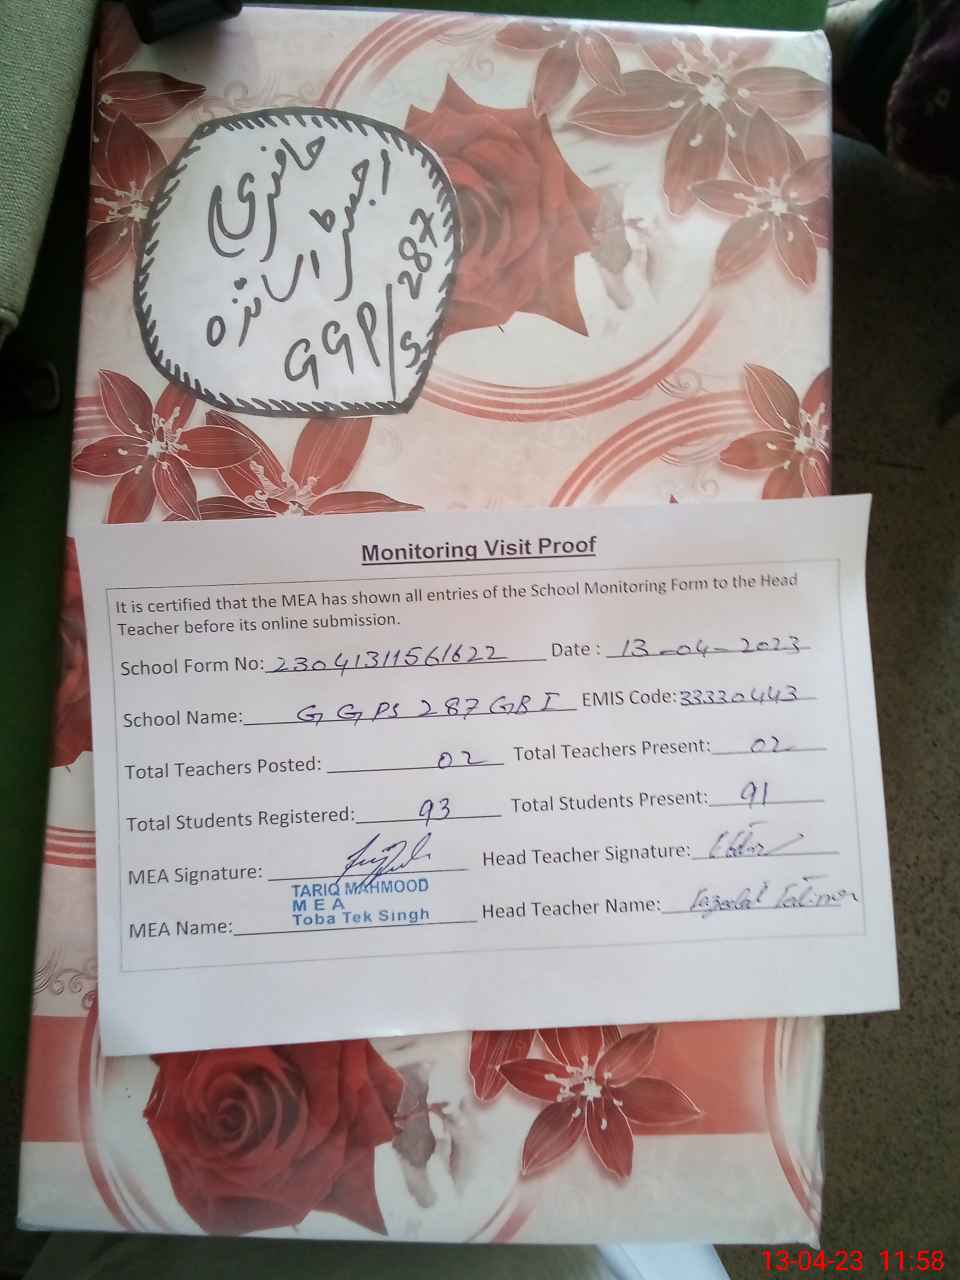 حاضری
رجسٹر اساتذہ
GGP/S 287
Monitoring Visit Proof
It is certified that the MEA has shown all entries of the School Monitoring Form to the Head
Teacher before its online submission.
School Form No: 23041311561622 Date : 13-04-2023
School Name: GGPS 287 GB I EMIS Code: 33330443
Total Teachers Posted: 02 Total Teachers Present: 02
Total Students Registered: 93 Total Students Present: 91
MEA Signature: Head Teacher Signature:
TARIQ MAHMOOD
M E A
Toba Tek Singh
MEA Name: Head Teacher Name:
13-04-23 11:58